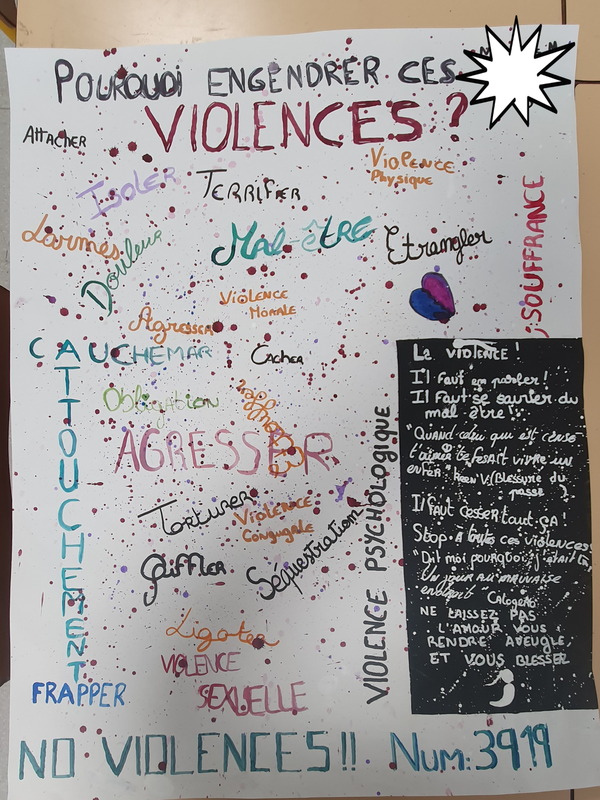 POURQUOI ENGENDRER CES
VIOLENCES ?
Attacher
Isoler
Terrifier
Violence
Physique
SOUFFRANCE
Larmes
Douleur
Mal-être
Etrangler
Violence
Morale
Agresser
CAUCHEMAR
Cacher
ATTOUCHEMENT
Obligation
AGRESSER
VIOLENCE PSYCHOLOGIQUE
Torturer
Violence
Conjugale
Giffler
Séquestration
Ligoter
VIOLENCE
SEXUELLE
FRAPPER
La VIOLENCE !
Il faut en parler !
Il faut se sauver du
mal être !
"Quand celui qui est censé
t'aimer te fesait vivre un
enfer" Keen V (Blessure du
passé)
Il faut cesser tout ça !
Stop à toutes ces violences
"Dit moi pourquoi j'était là
Un jour au mauvaise
endroit" Calogero
NE LAISSEZ PAS
L'AMOUR VOUS
RENDRE AVEUGLE
ET VOUS BLESSER
NO VIOLENCES !! Num: 3919